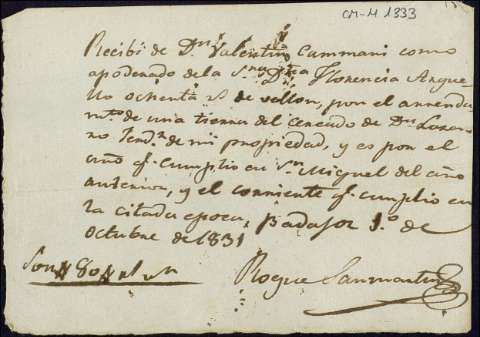 CM-M 1333
Recibi de Dn Valentin Cammani como
apoderado de la Sra Dña Florencia Argue-
llo ochenta rs de vellon, por el arrenda
mto de una tierra del cercado de Dn Loren-
zo de mi propiedad, y es por el
año qe cumplio en Sn Miguel del año
anterior, y el corriente qe cumplio en
la citada epoca, Badajoz 1.º de
octubre de 1831
Son 80 rs vn
Roque Sanmartin